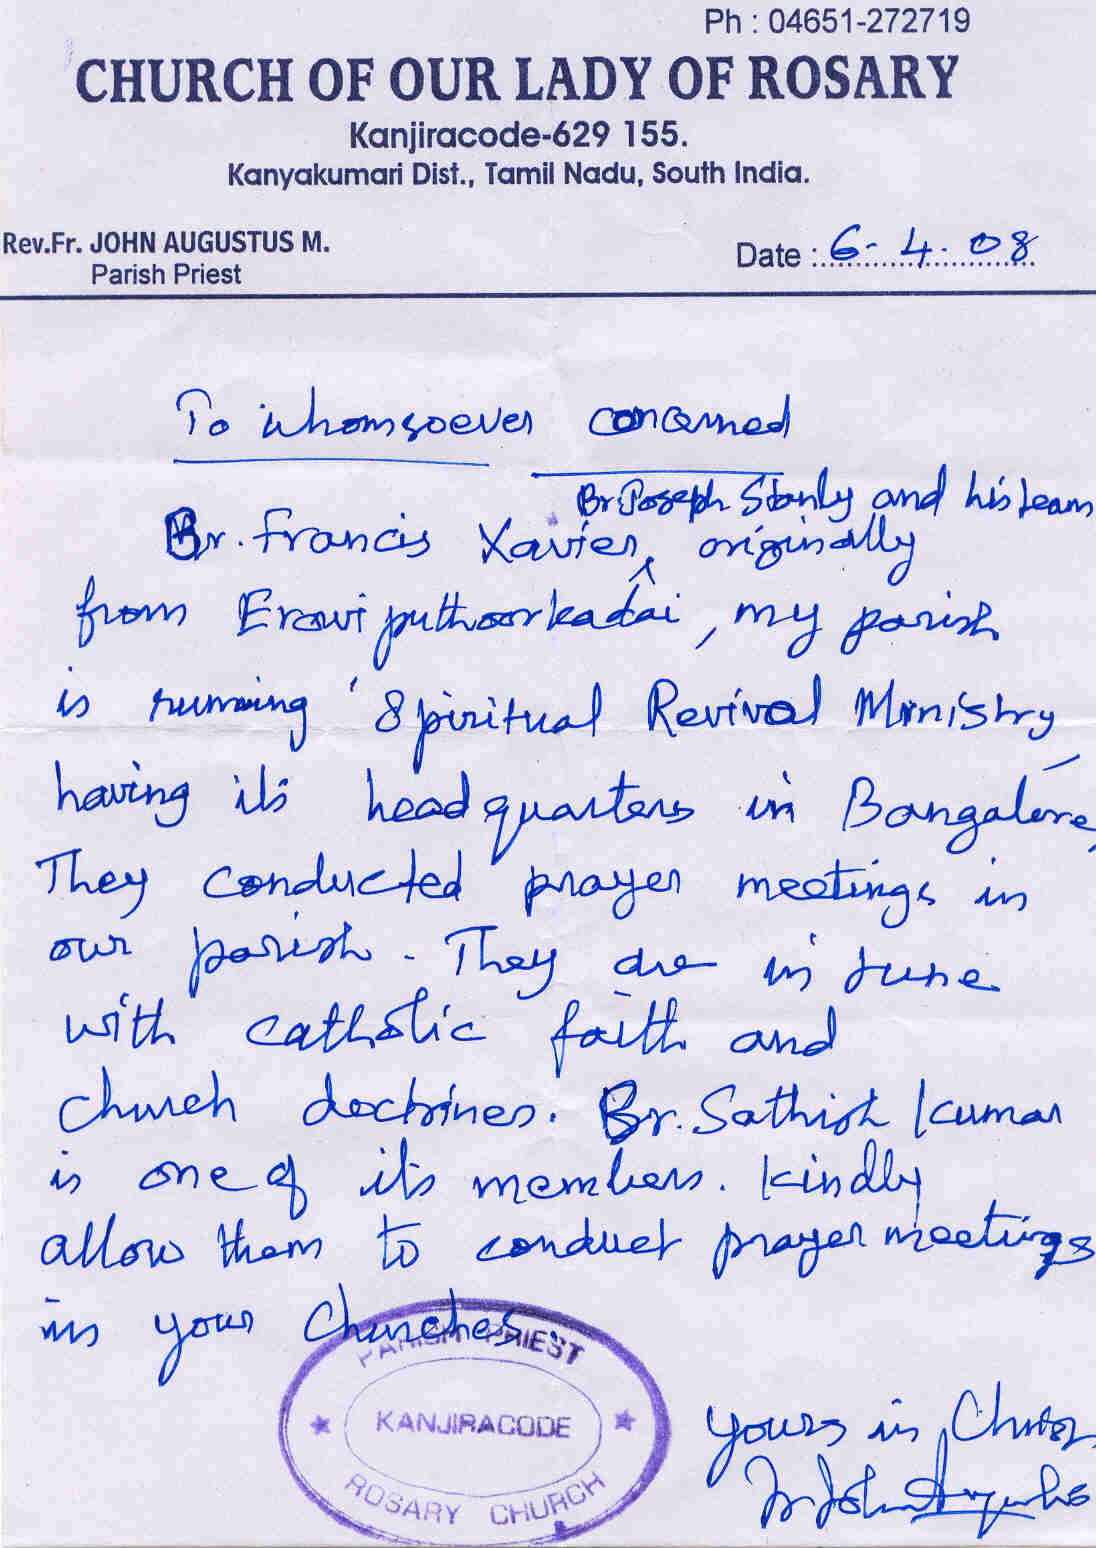 Ph : 04651-272719
CHURCH OF OUR LADY OF ROSARY
Kanjiracode-629 155.
Kanyakumari Dist., Tamil Nadu, South India.
Rev.Fr. JOHN AUGUSTUS M.
Parish Priest
Date : 6-4-08
To whomsoever concerned
Br. Joseph Stanly and his team
Br. Francis Xavier, originally
from Eraviputhoorkadai, my parish
is running 'Spiritual Revival Ministry,
having its headquarters in Bangalore,
They conducted prayer meetings in
our parish. They are in tune
with catholic faith and
church doctrines. Br. Sathish Kumar
is one of its members. Kindly
allow them to conduct prayer meetings
in your Churches.
PARISH PRIEST
KANJIRACODE
ROSARY CHURCH
Yours in Christ,
Fr John Augustus